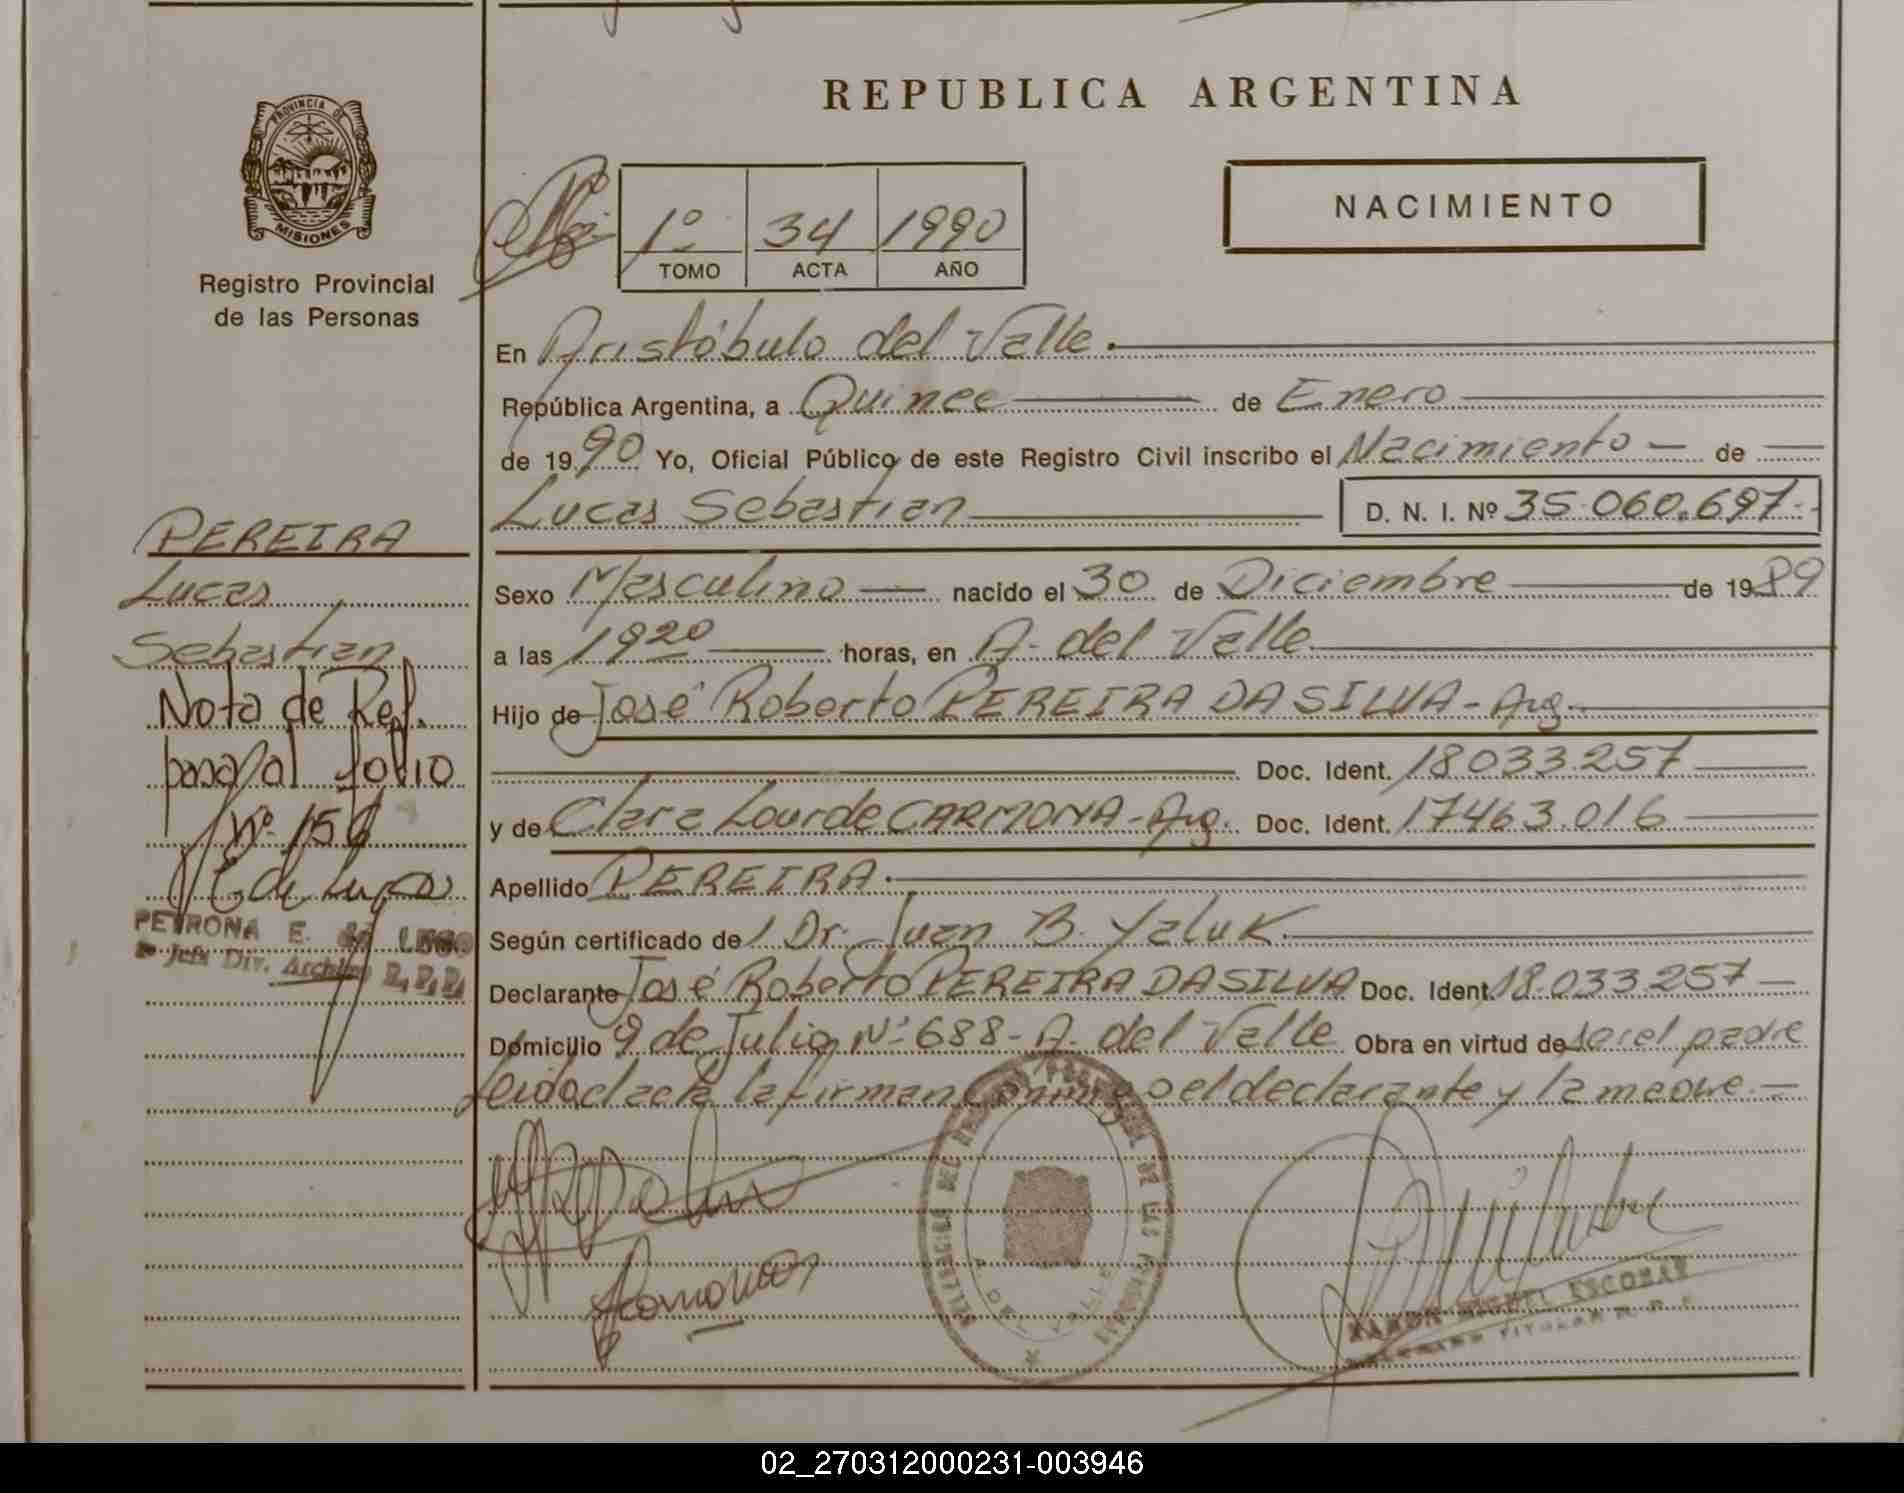 REPUBLICA ARGENTINA
PROVINCIA DE
MISIONES
Registro Provincial
de las Personas
1º 34 1990
TOMO ACTA AÑO
NACIMIENTO
En Aristóbulo del Valle.
República Argentina, a Quince de Enero
de 1990 Yo, Oficial Público de este Registro Civil inscribo el Nacimiento de
Lucas Sebastian D. N. I. Nº 35.060.697
Sexo Masculino nacido el 30 de Diciembre de 1989
a las 1920 horas, en A. del Valle
Hijo de José Roberto PEREIRA DA SILVA - Arg.
Doc. Ident. 18.033.257
y de Clara Lourde CARMONA - Arg. Doc. Ident. 17463.016
Apellido PEREIRA.
Según certificado de Dr. Juan B. Yaluk
Declarante José Roberto PEREIRA DA SILVA Doc. Ident. 18.033.257
Domicilio 9 de Julio Nº 688 - A. del Valle Obra en virtud de ser el padre
Leida el acta la firman conmigo el declarante y la madre.
PEREIRA
Lucas
Sebastian
Nota de Ref.
pasa al folio
Nº 156
PETRONA E. de LUGO
Jefe Div. Archivo R.P.P.
A. DEL VALLE
RAMON MIGUEL ESCOBAR
TITULAR R.P.P.
02_270312000231-003946